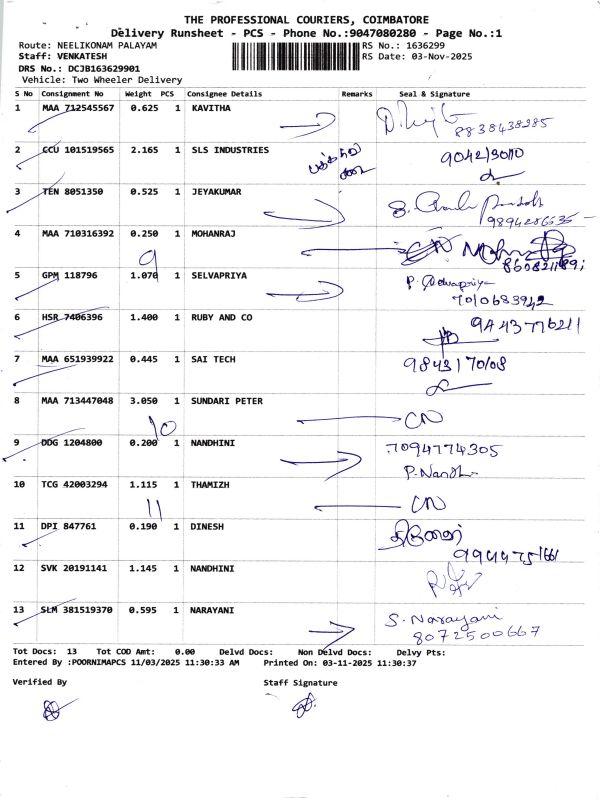 THE PROFESSIONAL COURIERS, COIMBATORE
Delivery Runsheet - PCS - Phone No.:9047080280 - Page No.:1
Route: NEELIKONAM PALAYAM RS No.: 1636299
Staff: VENKATESH RS Date: 03-Nov-2025
DRS No.: DCJB163629901
Vehicle: Two Wheeler Delivery
S No Consignment No Weight PCS Consignee Details Remarks Seal & Signature
1 MAA 712545567 0.625 1 KAVITHA
8838438285
2 CCU 101519565 2.165 1 SLS INDUSTRIES
3 TEN 8051350 0.525 1 JEYAKUMAR
4 MAA 710316392 0.250 1 MOHANRAJ CN
9
5 GPM 118796 1.070 1 SELVAPRIYA P. Selvapriya
7010683942
6 HSR 7406396 1.400 1 RUBY AND CO
7 MAA 651939922 0.445 1 SAI TECH
8 MAA 713447048 3.050 1 SUNDARI PETER CN
10
9 DDG 1204800 0.200 1 NANDHINI 7094774305
10 TCG 42003294 1.115 1 THAMIZH CN
11
11 DPI 847761 0.190 1 DINESH
12 SVK 20191141 1.145 1 NANDHINI
13 SLM 381519370 0.595 1 NARAYANI S. Narayani
8072500667
Tot Docs: 13 Tot COD Amt: 0.00 Delvd Docs: Non Delvd Docs: Delvy Pts:
Entered By :POORNIMAPCS 11/03/2025 11:30:33 AM Printed On: 03-11-2025 11:30:37
Verified By Staff Signature